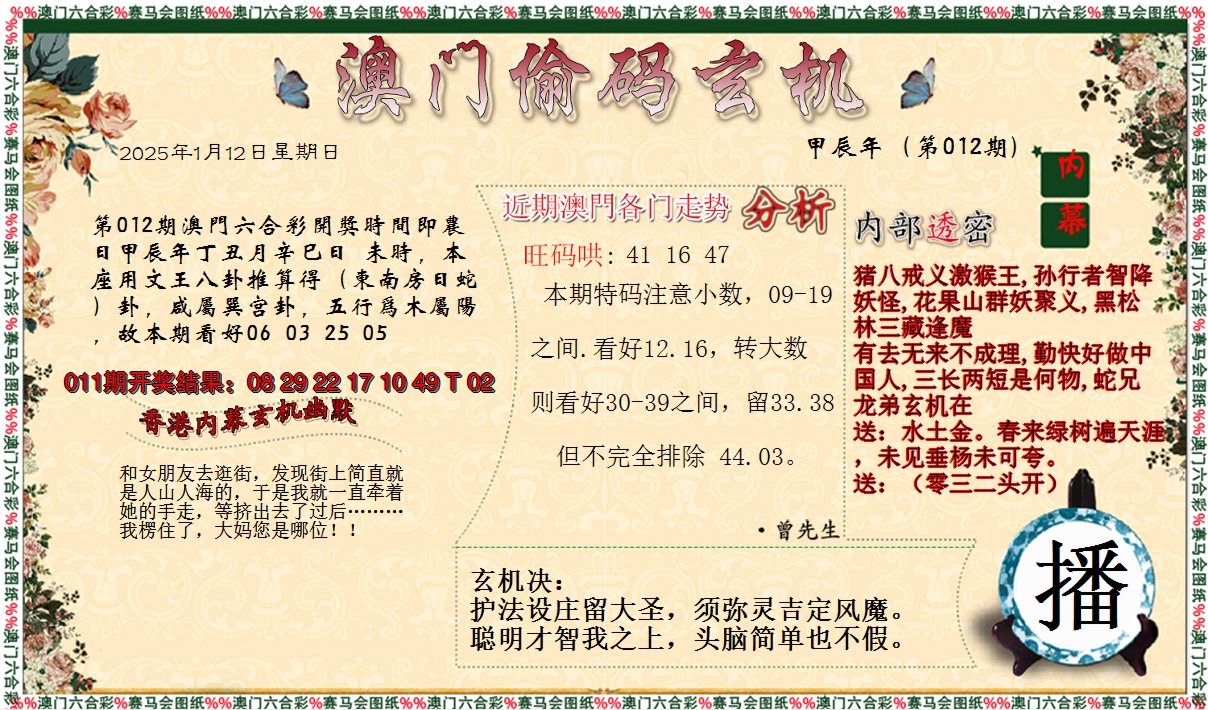 %%澳门六合彩%赛马会图纸%%澳门六合彩%赛马会图纸%%澳门六合彩%赛马会图纸%%澳门六合彩%赛马会图纸%%澳门六合彩%赛马会图纸%%澳门六合彩%赛马会图纸%%
澳门偷码玄机
2025年1月12日星期日
甲辰年 （第012期）
内幕
第012期澳門六合彩開獎時間即農
日甲辰年丁丑月辛巳日 未時，本
座用文王八卦推算得（東南房日蛇
）卦，咸屬巽宫卦，五行爲木屬陽
，故本期看好06 03 25 05
011期开奖结果：08 29 22 17 10 49 T 02
香港内幕玄机幽默
和女朋友去逛街，发现街上简直就
是人山人海的，于是我就一直牵着
她的手走，等挤出去了过后………
我楞住了，大妈您是哪位！！
近期澳門各门走势 分析
旺码哄: 41 16 47
本期特码注意小数，09-19
之间.看好12.16，转大数
则看好30-39之间，留33.38
但不完全排除 44.03。
·曾先生
内部透密
猪八戒义激猴王,孙行者智降
妖怪,花果山群妖聚义,黑松
林三藏逢魔
有去无来不成理,勤快好做中
国人,三长两短是何物,蛇兄
龙弟玄机在
送：水土金。春来绿树遍天涯
，未见垂杨未可夸。
送：（零三二头开）
玄机决：
护法设庄留大圣，须弥灵吉定风魔。
聪明才智我之上，头脑简单也不假。
播
%%澳门六合彩%赛马会图纸%%澳门六合彩%赛马会图纸%%澳门六合彩%赛马会图纸%%澳门六合彩%赛马会图纸%%澳门六合彩%赛马会图纸%%澳门六合彩%赛马会图纸%%